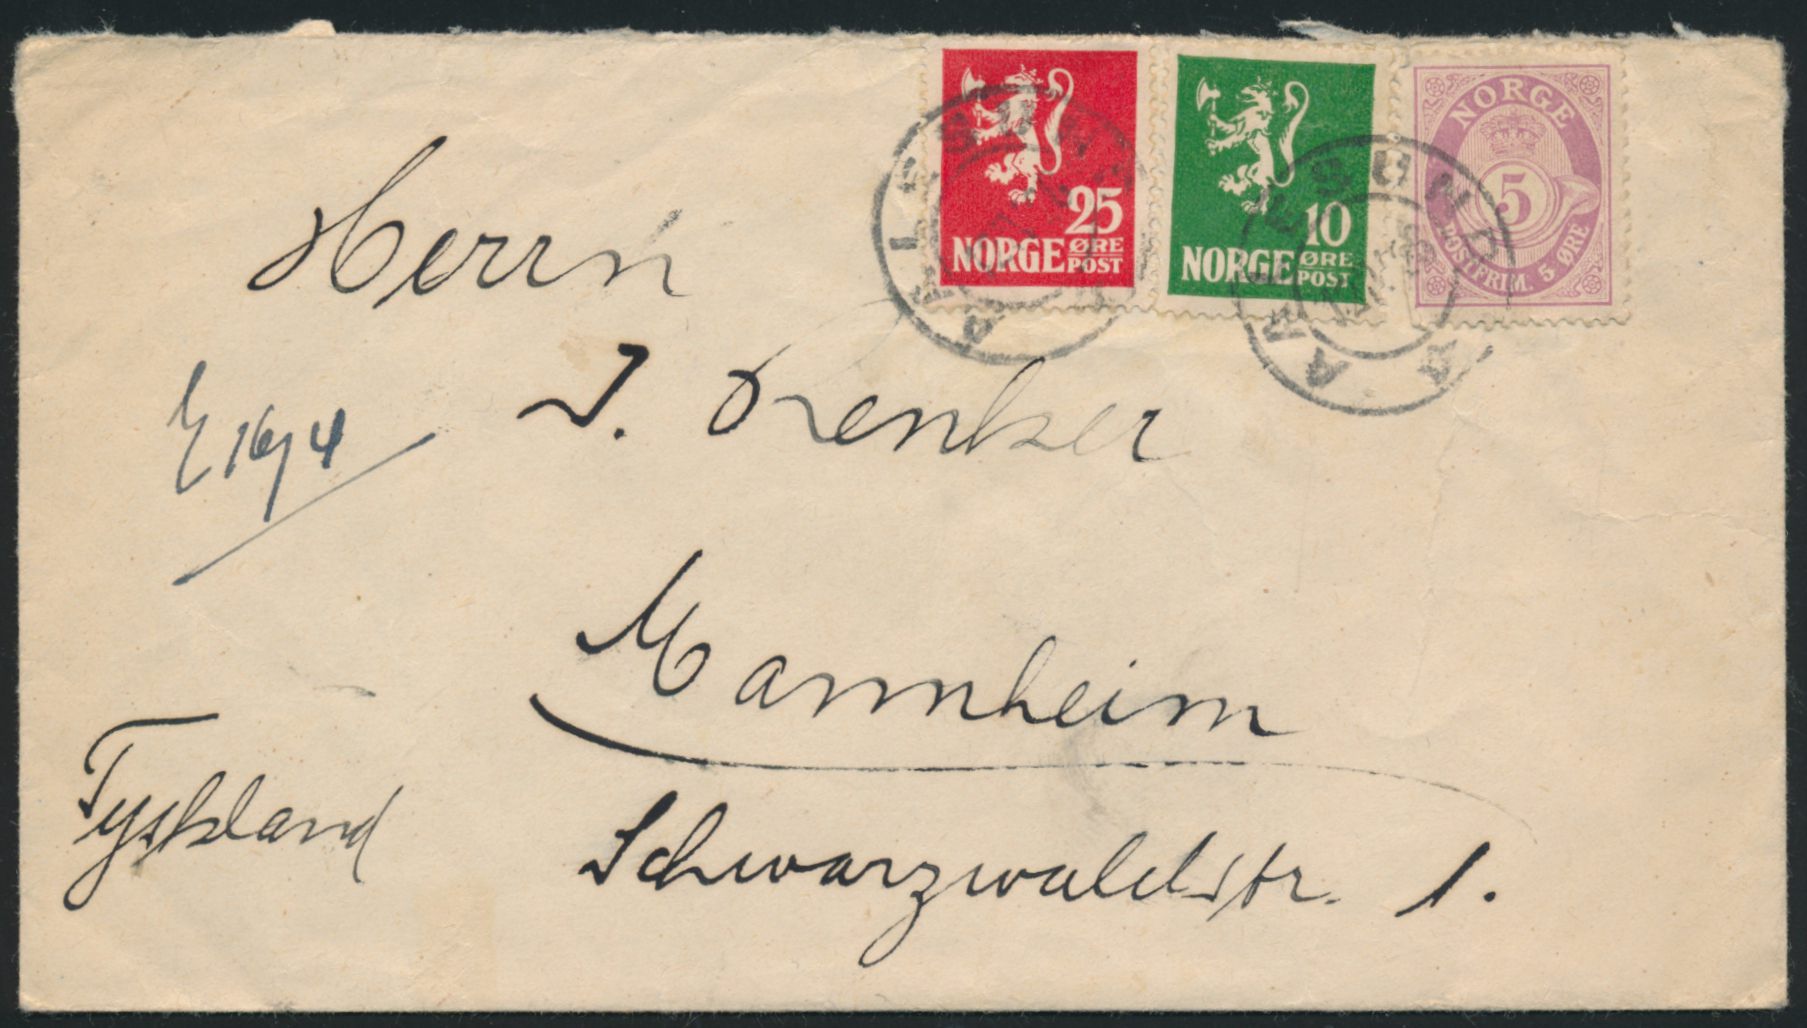 25
NORGE ØRE POST
10
NORGE ØRE POST
NORGE
5
POSTFRIM. 5 ØRE
AALESUND
AALESUND
Herrn
J. Renker
Mannheim
Schwarzwaldstr. 1.
Tyskland